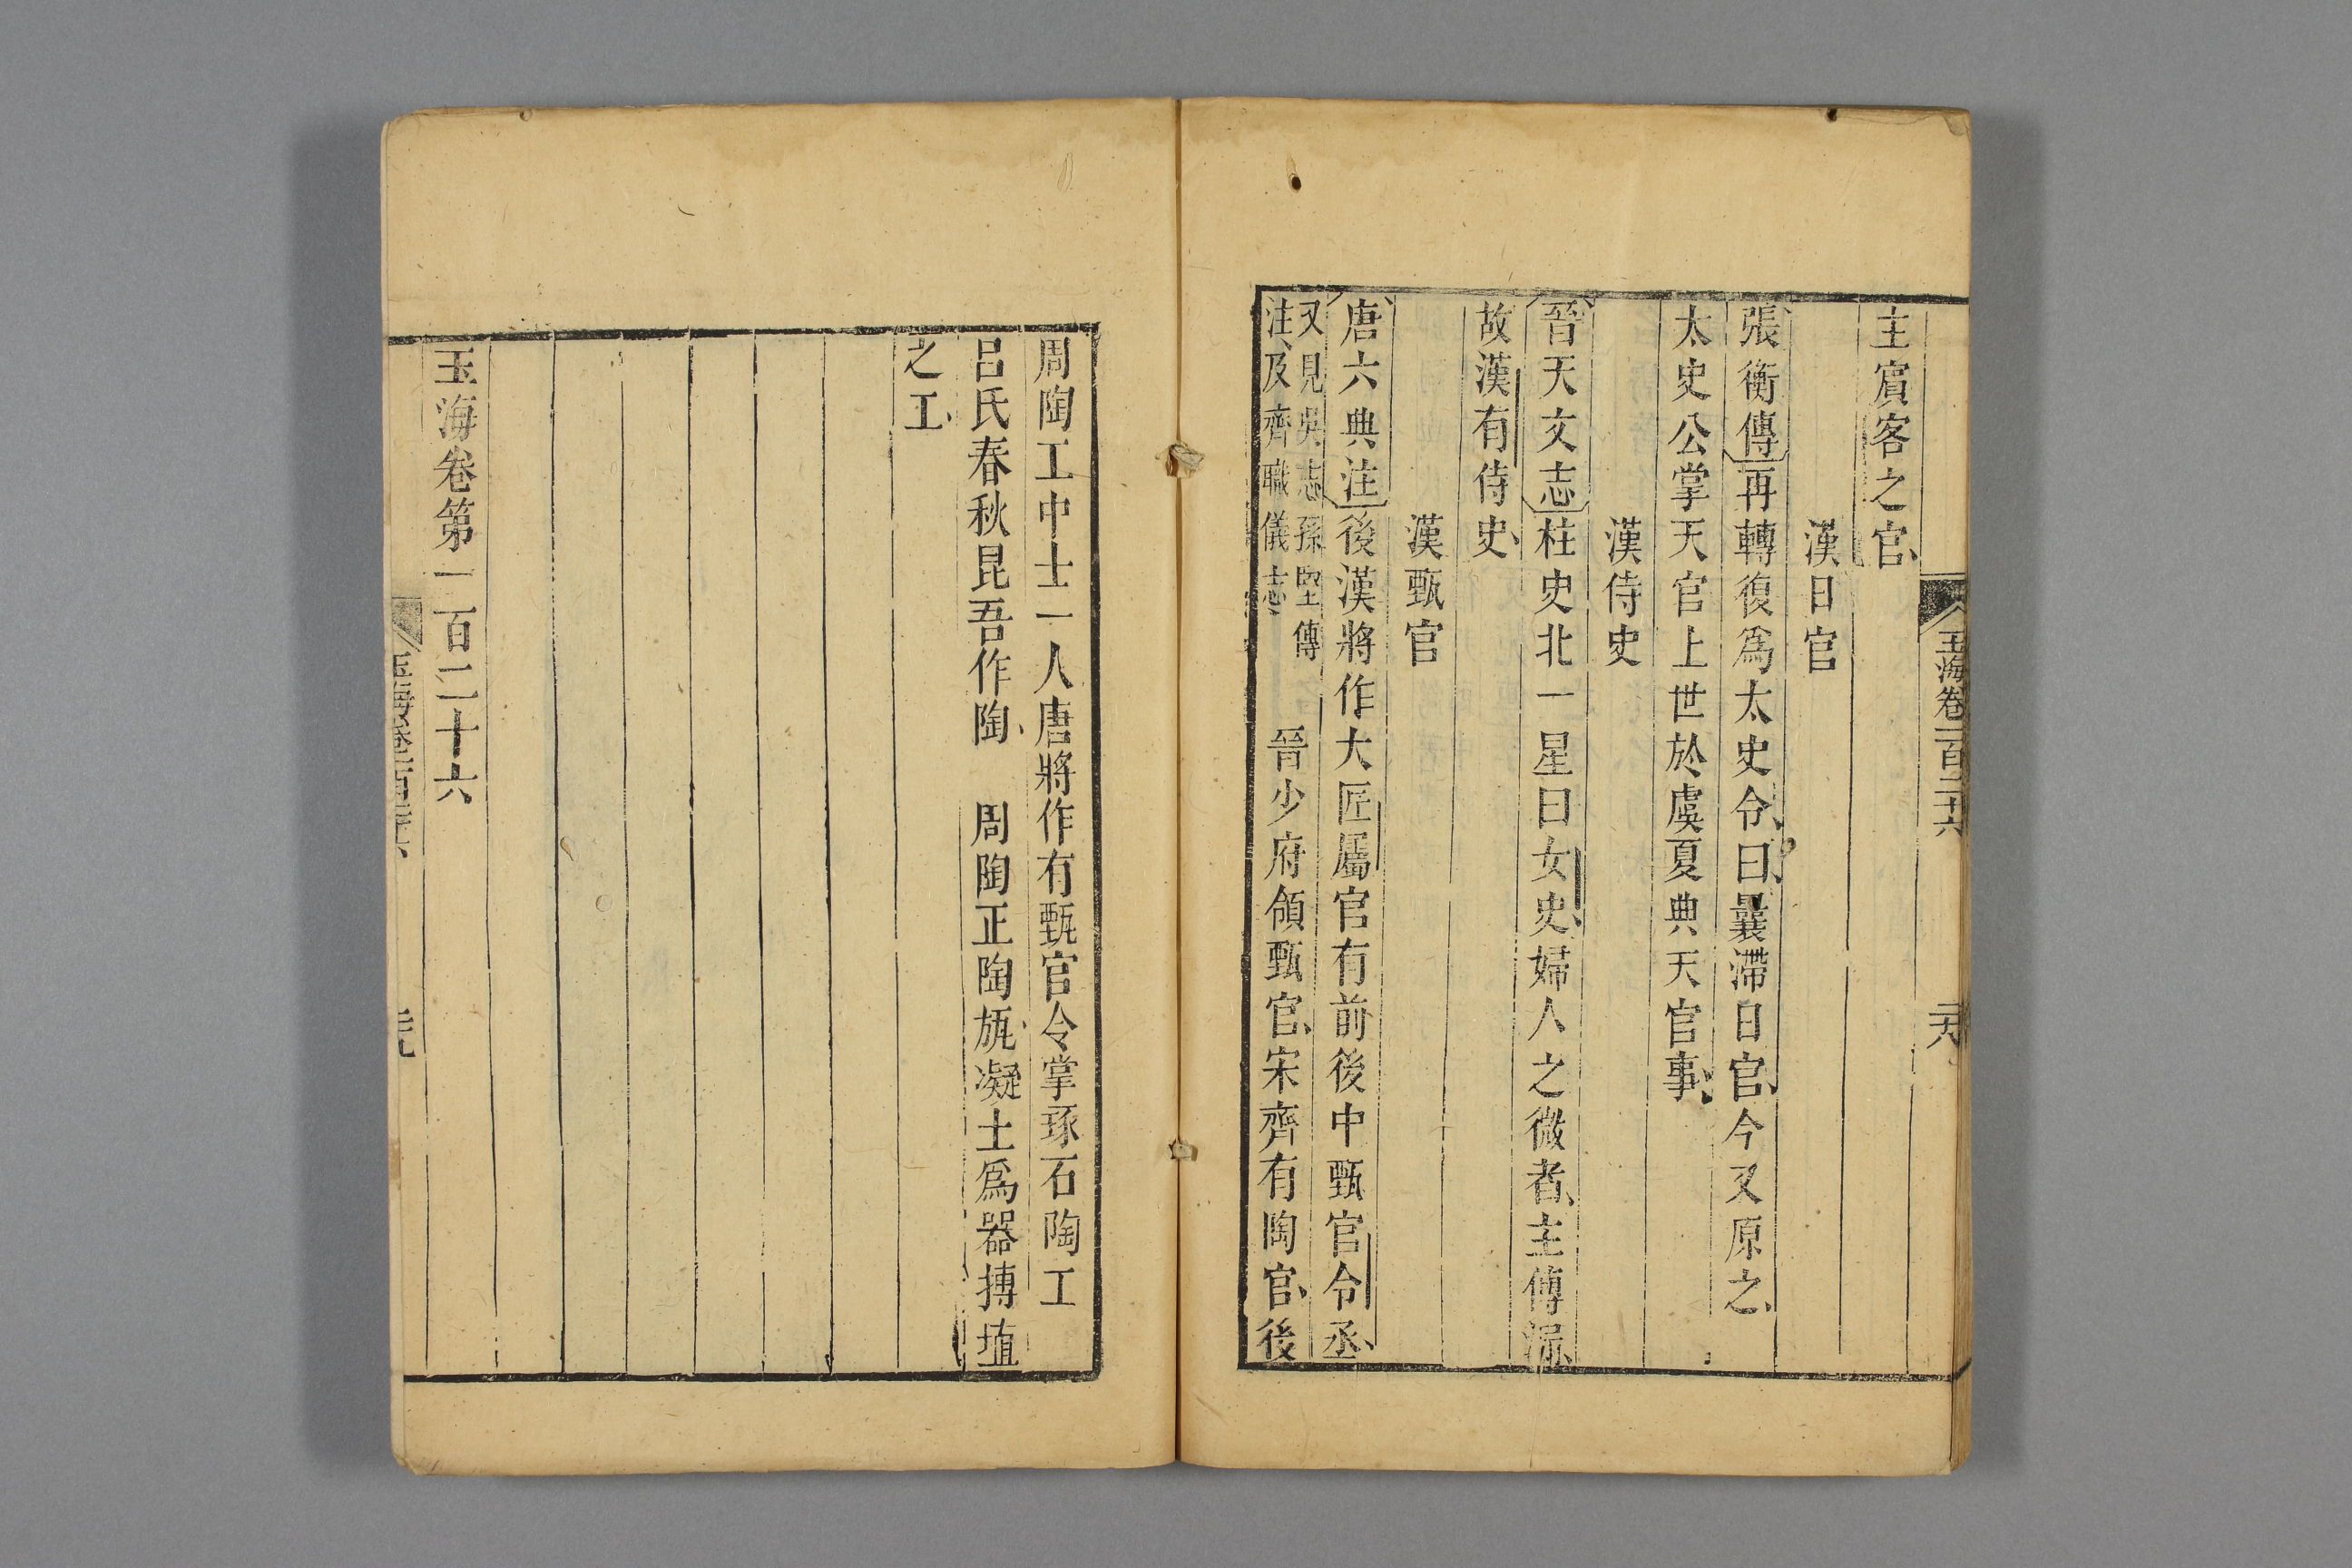 玉海卷一百二十六
主賓客之官
漢日官
張衡傳再轉復爲太史令曰曩滯日官今又原之
太史公掌天官上世於虞夏典天官事
漢侍史
晉天文志柱史北一星曰女史婦人之微者主傳漏
故漢有侍史
漢甄官
唐六典注後漢將作大匠屬官有前後中甄官令丞
又見吳志孫堅傳
注及齊職儀志
晉少府領甄官宋齊有陶官後
周陶工中士一人唐將作有甄官令掌琢石陶工
呂氏春秋昆吾作陶　周陶正陶旊凝土爲器搏埴
之工
玉海卷第一百二十六
玉海卷一百二十六
三九